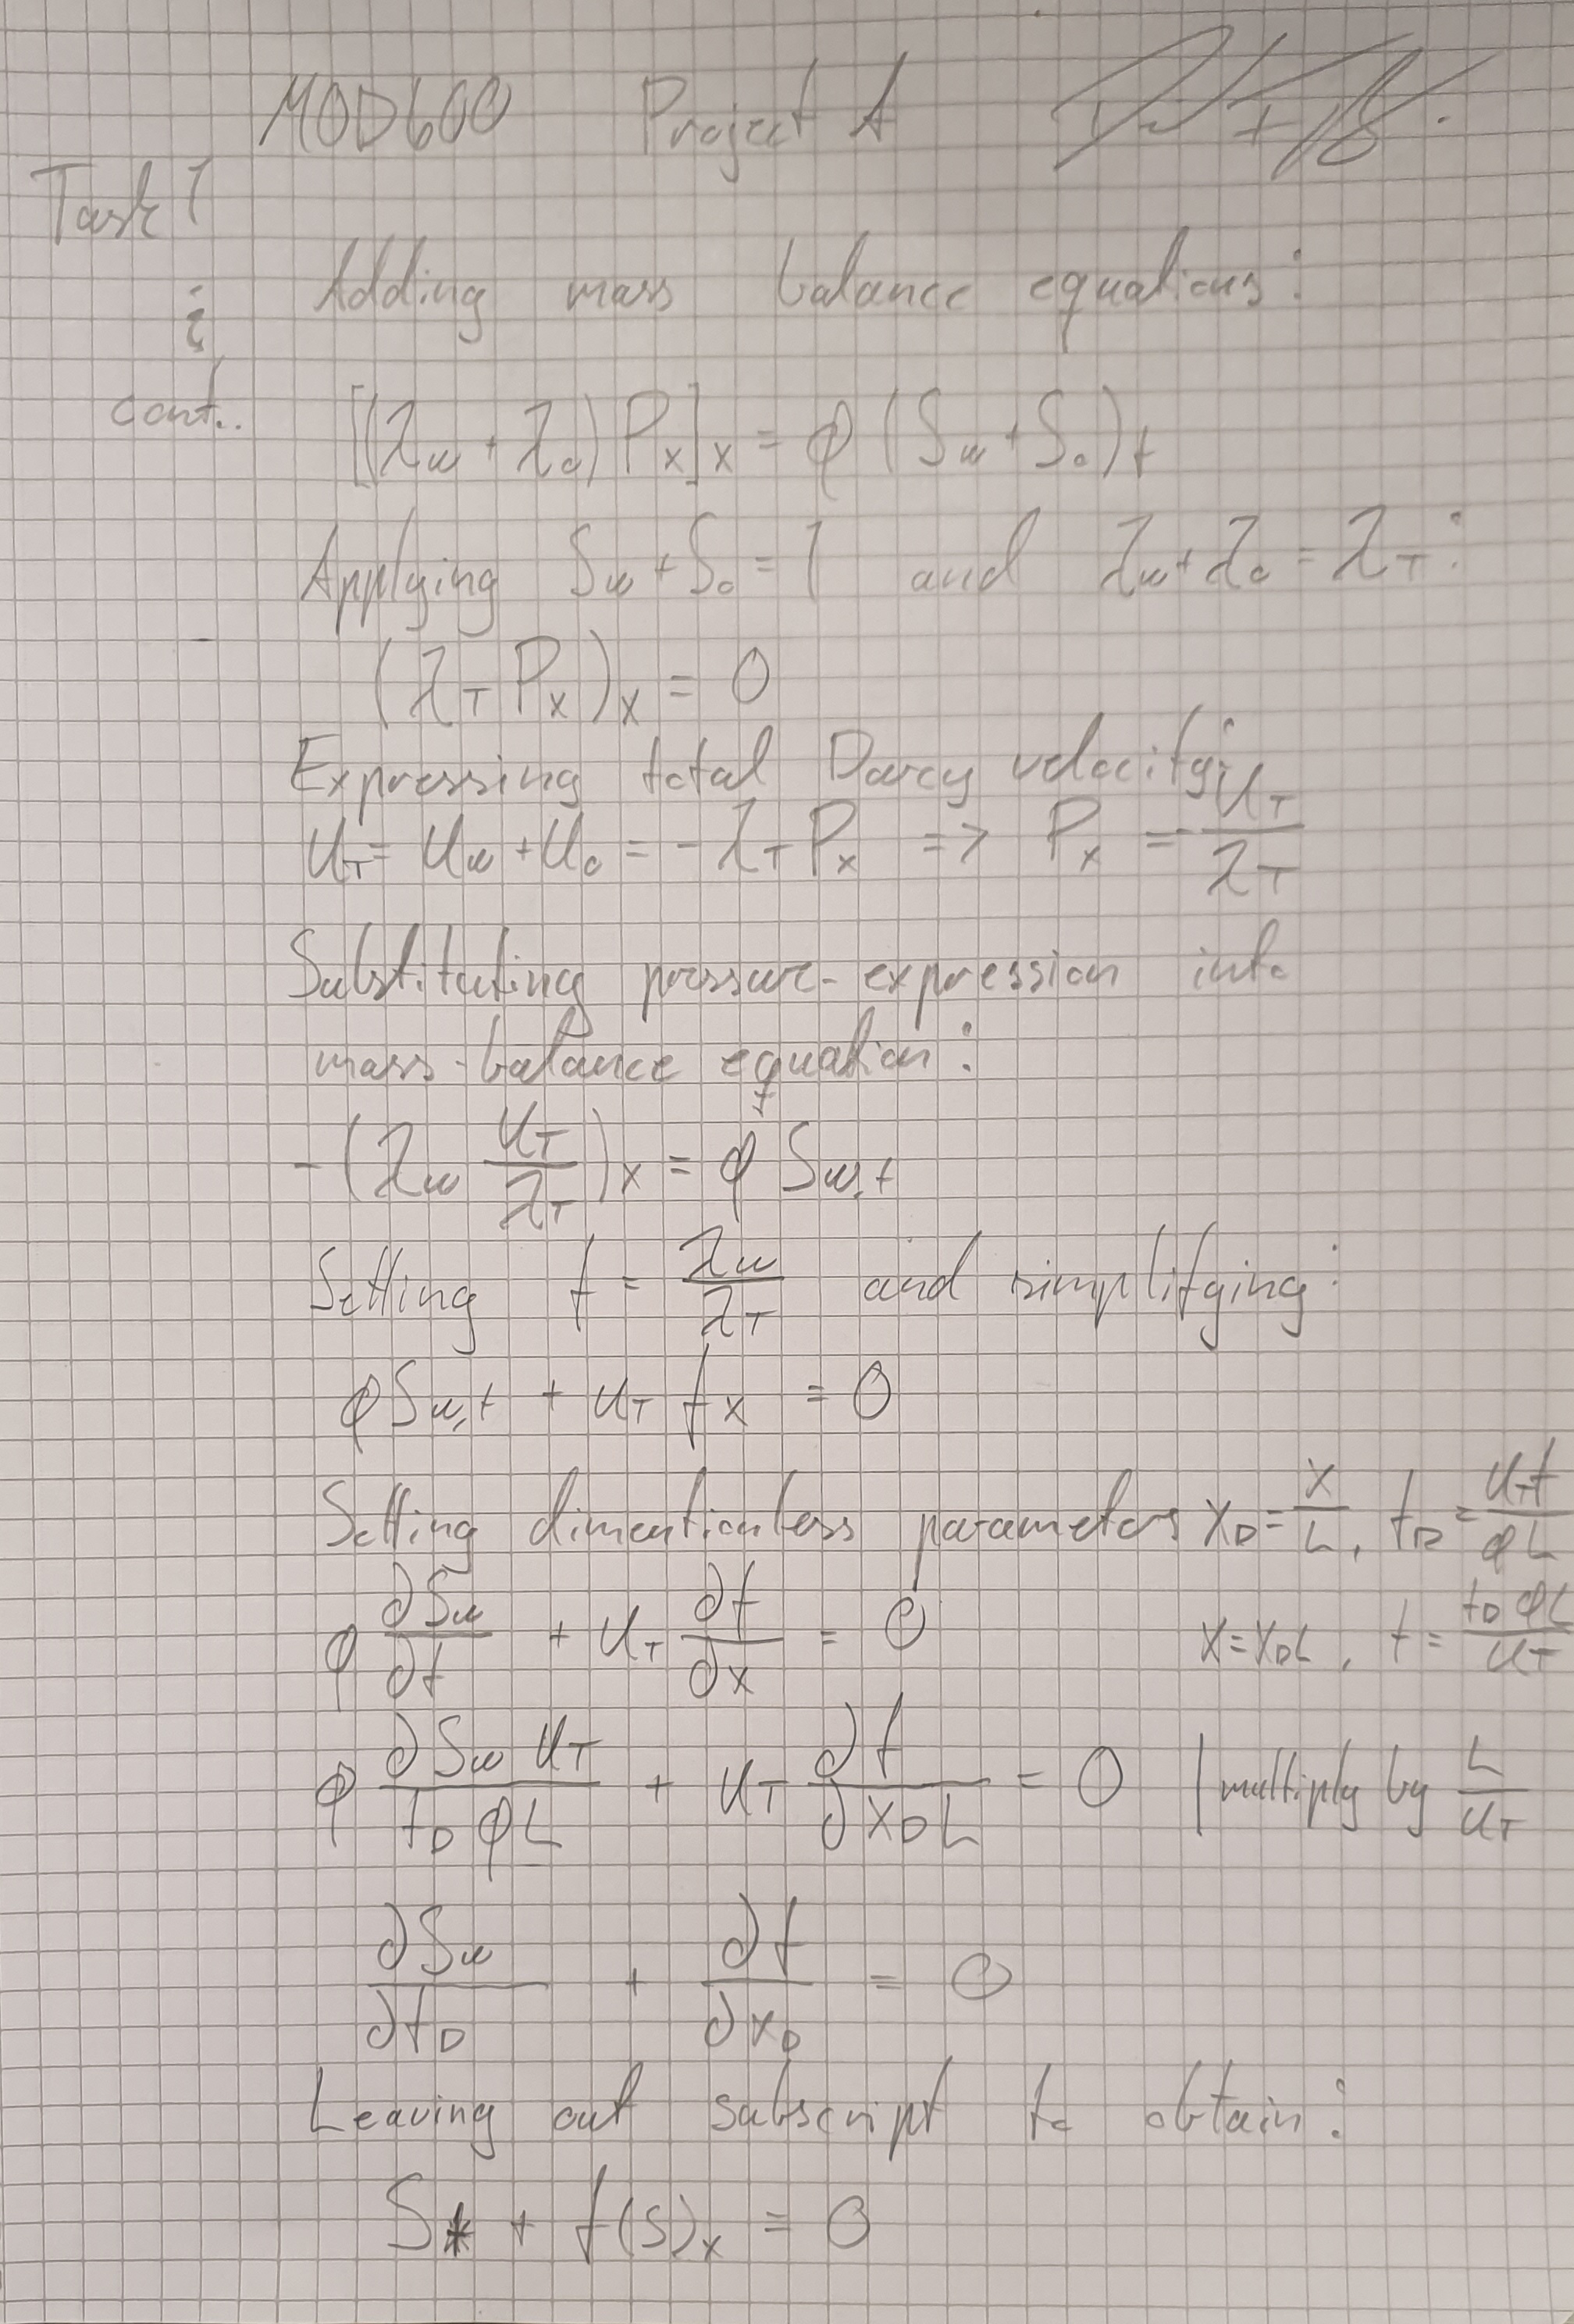 MOD600 Project A
Task 1
i Adding mass balance equations:
cont.. [(λw + λo) Px]x = φ (Sw + So)t
Applying Sw + So = 1 and λw + λo = λT:
(λT Px)x = 0
Expressing total Darcy velocity:
uT = uw + uo = -λT Px => Px = -uT/λT
Substituting pressure-expression into
mass-balance equation:
-(λw uT/λT)x = φ Sw,t
Setting f = λw/λT and simplifying:
φSw,t + uT fx = 0
Setting dimentionless parameters xD = x/L, tD = uTt/φL
φ ∂Sw/∂t + uT ∂f/∂x = 0 x = xDL, t = tDφL/uT
φ ∂Sw uT/tD φL + uT ∂f/∂xDL = 0 | multiply by L/uT
∂Sw/∂tD + ∂f/∂xD = 0
Leaving out subscript to obtain:
St + f(S)x = 0